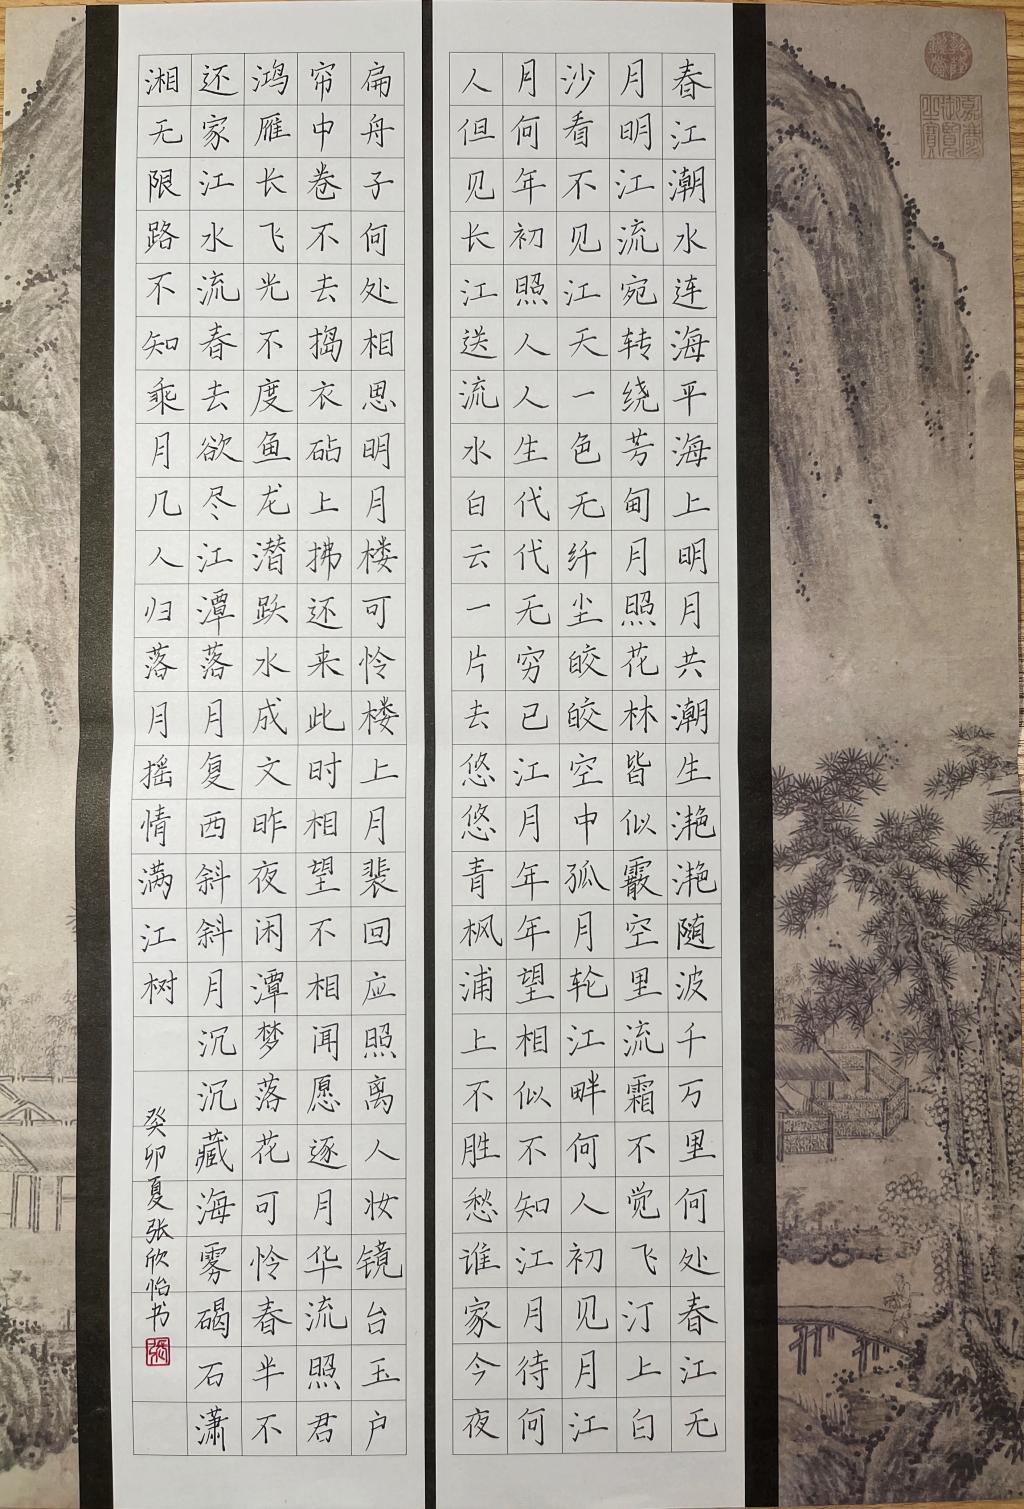 春江潮水连海平海上明月共潮生滟滟随波千万里何处春江无
月明江流宛转绕芳甸月照花林皆似霰空里流霜不觉飞汀上白
沙看不见江天一色无纤尘皎皎空中孤月轮江畔何人初见月江
月何年初照人人生代代无穷已江月年年望相似不知江月待何
人但见长江送流水白云一片去悠悠青枫浦上不胜愁谁家今夜
扁舟子何处相思明月楼可怜楼上月裴回应照离人妆镜台玉户
帘中卷不去捣衣砧上拂还来此时相望不相闻愿逐月华流照君
鸿雁长飞光不度鱼龙潜跃水成文昨夜闲潭梦落花可怜春半不
还家江水流春去欲尽江潭落月复西斜斜月沉沉藏海雾碣石潇
湘无限路不知乘月几人归落月摇情满江树
癸卯夏张欣怡书
张